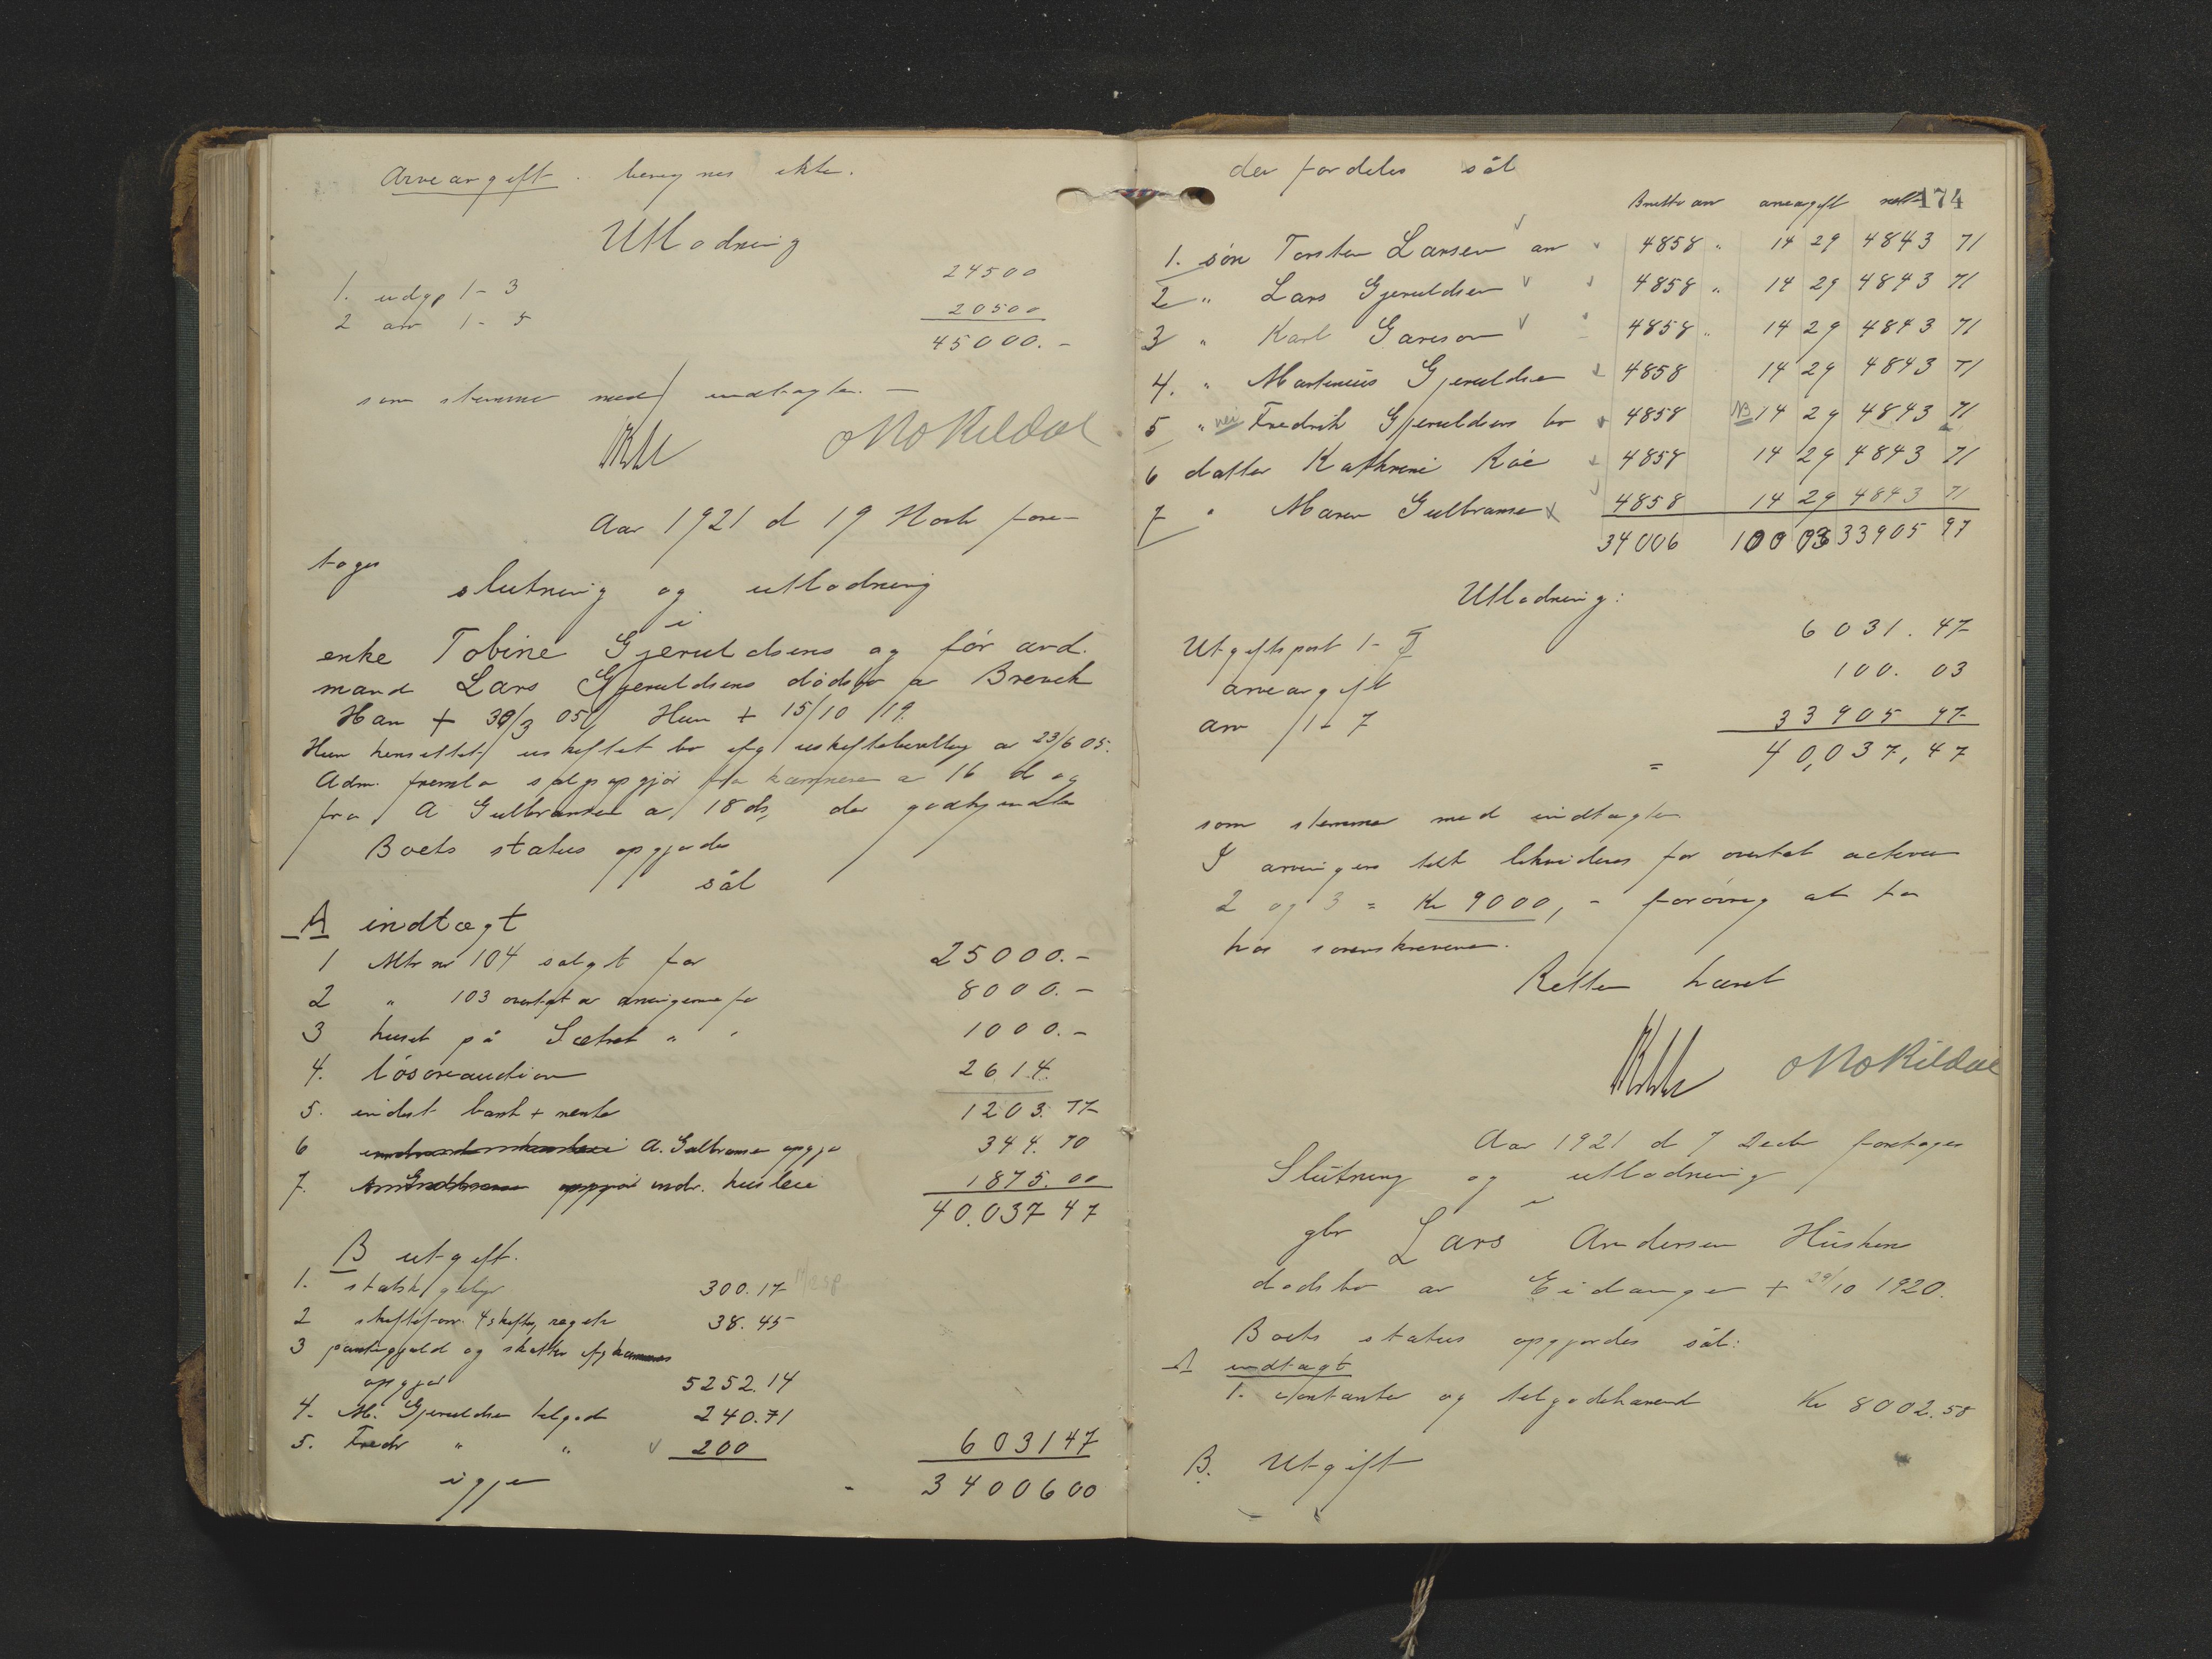 Arveavgift. beregnes ikke.
Utlodning
1. udgp 1-3 24500
2 arv 1-5 20500
45000.-
som stemmer med indtægten. -
OMoKildal
Aar 1921 d 19 Novb fore-
tages
slutning og utlodning
i
enke Tobine Gjeruldsens og før avd.
mand Lars Gjeruldsens dødsbo av Brevik
Han + 30/3 05, Hun + 15/10 19.
Hun hensittet i uskiftet bo ifg uskiftebevilling av 23/6 05.
Adm. fremla salgsopgjør fra kæmneren av 16 ds og
fra A Gulbransen av 18 ds, der godkjendtes
Boets status opgjordes
sål
A indtægt
1 Mtr nr 104 solgt for 25000.-
2 " 103 overtat av arvingerne for 8000.-
3 huset på Sætret " " 1000.-
4. løsøreauction 2614.
5. indest bank + rente 1203.77
6 A. Gulbransen opgjør 344.70
7. indr. husleie 1875.00
40.037 47
B utgift.
1. statsk gebyr 300.17
2 skifteforv. 4 skifter, regnsk 38.45
3 pantegjæld og skatter ifg
opgjør 5252.14
4. M. Gjeruldsen tilgode 240.71
5. Fredr " " 200 6031 47
igjen - 34006 00
der fordeles sål
174
Brutto arv arveavgift netto
1. søn Torsten Larsen arv 4858 " 14 29 4843 71
2 " Lars Gjeruldsen 4858 " 14 29 4843 71
3 " Karl Gareson 4858 " 14 29 4843 71
4. " Martinius Gjeruldsen 4858 14 29 4843 71
5 " Fredrik Gjeruldsens bo 4858 NB 14 29 4843 71
6 datter Kathrine Róe 4858 14 29 4843 71
7 " Maren Gulbransen 4858 14 29 4843 71
34006 100 03 33905 97
Utlodning:
Utgiftspost 1-5 6031.47
arveavgift 100.03
arv 1-7 33905 97
= 40,037,47
som stemmer med indtægten
I arvingers tilk likvideres for overtat activa
2 og 3 = Kr 9000,- forøvrig at ta
hos sorenskriveren.
Retten hævet
OMoKildal
Aar 1921 d 7 Decb foretages
Slutning og utlodning
i
gbr Lars Andersen Húsken
dødsbo av Eidanger + 29/10 1920.
Boets status opgjordes sål:
A indtægt
1. contanter og tilgodehavende Kr 8002.58
B. Utgift